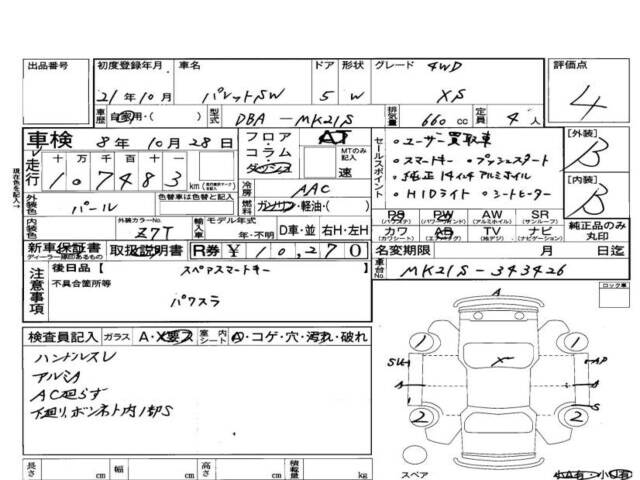 出品番号 初度登録年月 車名 ドア 形状 グレード 評価点
21年10月 パレットSW 5 W 4WD XS 4
車歴 自家用・( ) 型式 DBA-MK21S 排気量 660cc 定員 4人
車検 8年10月28日 フロア コラム ダッシュ AT MTのみ記入 速
走行 十万千百十 107483 km
現在色を記入→
外装色 パール 色替車は色替と記入 冷房 AAC
燃料 ガソリン・軽油・( )
内装色 外装カラーNo. Z7T 輸入車 モデル年式 年・不明 D車・並 右H・左H
セールスポイント
・ユーザー買取車
・スマートキー ・プッシュスタート
・純正14インチアルミホイル
・HIDライト ・シートヒーター
[外装] B
[内装] B
PS (パワステ) PW (パワーウインド) AW (アルミホイル) SR (サンルーフ)
カワ (カワシート) AB (エアバッグ) TV (地デジ) ナビ (ナビゲーション)
純正品のみ丸印
新車保証書 ディーラー印あるもの 取扱説明書 R券 ¥10,270
名変期限 月 日迄
車台No. MK21S-343426
注意事項
後日品【 スペアスマートキー 】
不具合箇所等
パワスラ
ロック車
検査員記入 ガラス A・X要ス 室内シート A・コゲ・穴・汚れ・破れ
ハンドルスレ
アルミA
AC廻らず
下廻り、ボンネット内1部S
A
1 1
X
A A
S
2 2
スペア
長さ cm 幅 cm 高さ cm 積載量 kg
小A有・小U有